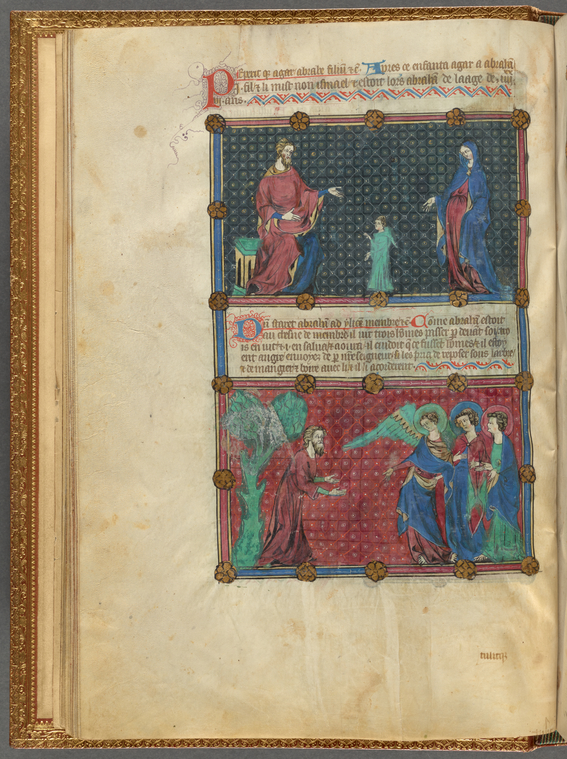 Peperit q̄ agar abrahe filiū ⁊c̄. Apres ce enfanta agar a abrahā
.j. fil ⁊ li mist non ismael ⁊ estoit lors abrahā de laage de .iiij.
ans.
stetet abrahā ad ylicē membre ⁊c̄ Cōme abrahā estoit
au chesne de membre il uit trois hōmes passer p deuāt soy
is en uit ⁊ .i. en salua ⁊ aoura. il cuidoit q̄ ce fussēt hōmes ⁊ il estoy
ent angre enuoyez de p nr̄eseigneur ⁊ les pria de reposer sous larbre
⁊ de mangier ⁊ boire auec li ⁊ il si acorderent